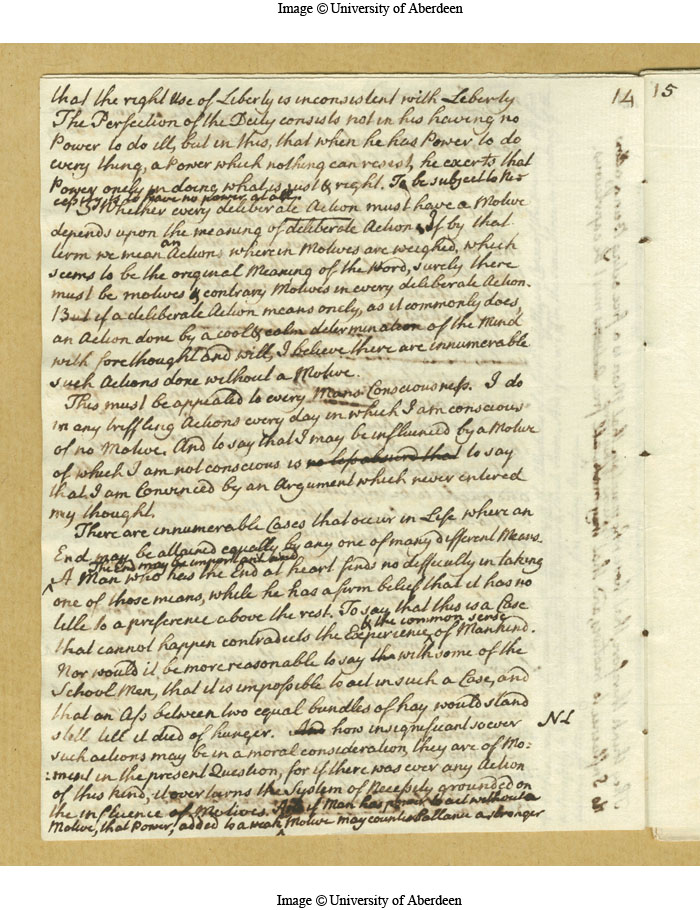 Image © University of Aberdeen
14
15
that the right Use of Liberty is inconsistent with Leberty
The Perfection of the Deity consists not in his having no
Power to do ill, but in this, that when he has Power to do
every thing, a Power which nothing can resist, he exerts that
Power onely in doing what is just & right. To be subject to Ne
cessity is to have no power at all.
3 Whether every deliberate Action must have a Motive
depends upon the meaning of deliberate Action. If by that
term we mean an Action wherein Motives are weighed, which
seems to be the original Meaning of the Word, surely there
must be motives & contrary Motives in every deliberate Action.
But if a deliberate Action means onely, as it commonly does,
an Action done by a cool & calm determination of the Mind
with forethought and will, I believe there are innumerable
such Actions done without a Motive.
This must be appealed to every Mans Consciousness. I do
in any triffling Actions every day in which I am conscious
of no Motive. And to say that I may be influenced by a Motive
of which I am not conscious is no less absurd than to say
that I am Convinced by an Argument which never entered
my thought.
There are innumerable Cases that occur in Life where an
End may be attained equally by any one of many different Means.
The End may be important and
A Man who has the End at heart finds no difficulty in taking
one of those means, while he has a firm belief that it has no
title to a preference above the rest. To say that this is a Case
& the common sense
that cannot happen contradicts the Experience of Mankind.
Nor would it be more reasonable to say with some of the
School Men, that it is impossible to act in such a Case, and
that an Ass between two equal bundles of hay would stand
still till it died of hunger. And how insignificant soever
NL
such actions may be in a moral consideration, they are of Mo:
:ment in the present Question, for if there was ever any Action
of this kind, it overturns the System of Necessity grounded on
the influence of Motives. And if Man has power to act without a
Motive, that Power, added to a weak Motive may counter ballance a stronger
Image © University of Aberdeen